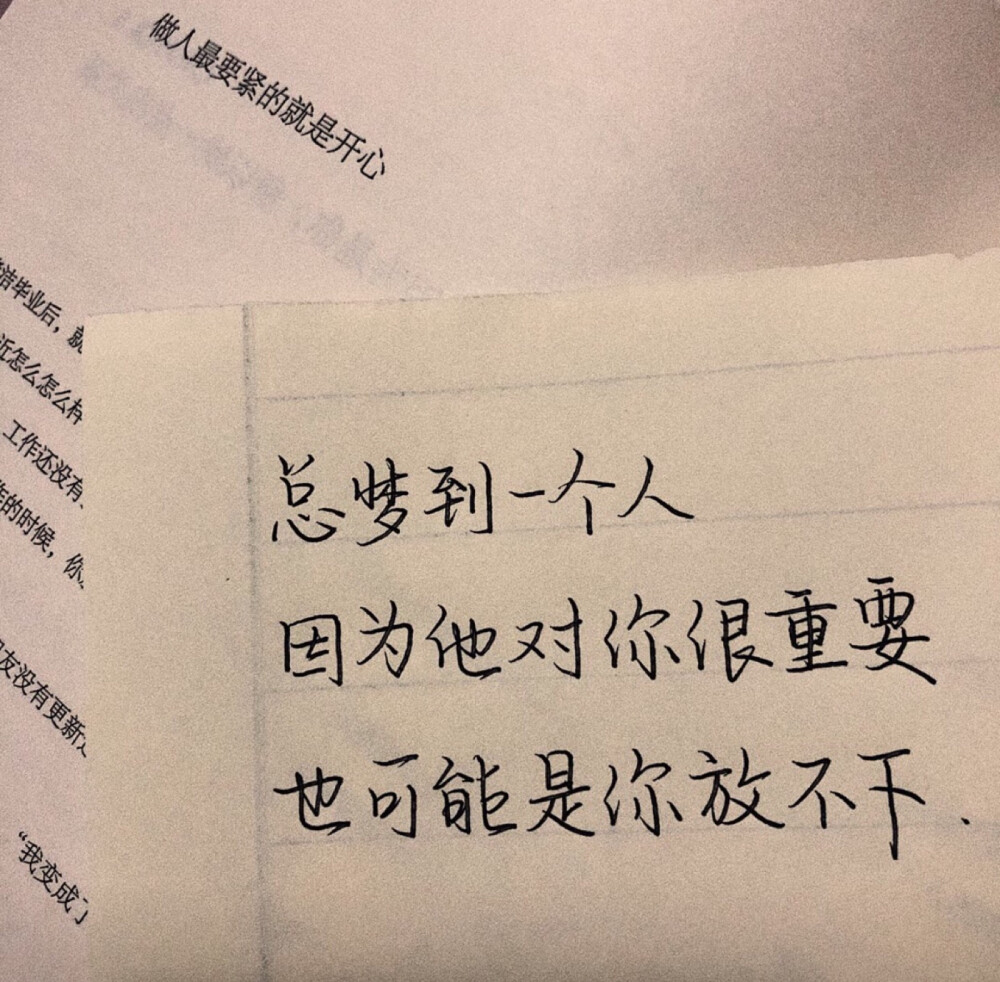 做人最要紧的就是开心
洁毕业后，就
近怎么怎么样
工作还没有
作的时候，你
朋友没有更新
“我变成了
总梦到一个人
因为他对你很重要
也可能是你放不下.